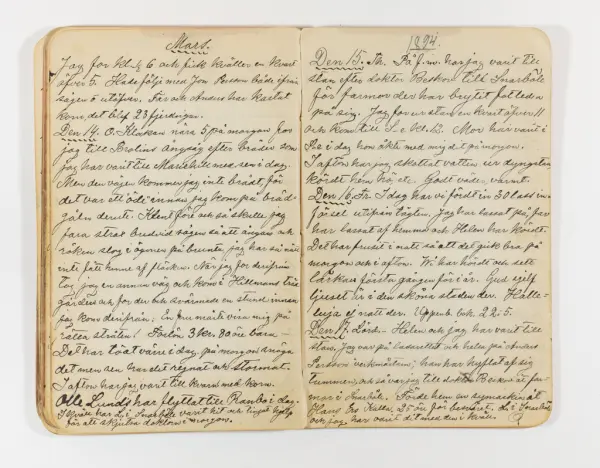 Mars.
Jag for kl. ½ 6 och fick kväller en kvart
öfver 5. Hade följe med Jon Persson både ifrån
sågen o utöfver. Far och Anders har kastat
korn, det blef 23 fjerdingar.
Den 14. O. Klockan nära 5 på morgon for
jag till Brolins ångsåg efter bräder som
jag har varit till Mariehill med sen i dag.
Men den vägen kommer jag inte brådt, för
det var ett öde innan jag kom på bräd-
gåln derute. Klent före och så skulle jag
fara strax bredvid sågen så att ångan och
röken slog i ögonen på brunte, jag har så när
inte fått honom af fläcken. När jag for derifrån
tog jag en annan väg och kom i Hillmans träd-
gård och for der och svärmade en stund innan
jag kom derifrån. En fru måste visa mig på
rätta stråten! Förtön. 3 kr. 80 öre bara —
Det har töat varre i dag, på morgon snöga
det men sen har det regnat och stormat.
I afton har jag varit till kvarn med korn.
Olle Lunds har flyttat till Ranbo i dag.
I qväll har L. i Snarböle varit hit och tinget hjelp
för att skjutsa doktorn i morgon.
1894.
Den 15. Th. På f.m. har jag varit till
stan efter doktor Beskow till Snarböle
för farmor der har brytit fotleden
på sig. Jag for ur stan en kvart öfver 11
och kom till S. e kl. 12. Mor har varit i
S.e i dag hon åkte med mig dit på morgon.
I afton har jag skottat vatten ur dyngstan
kördt hem hö etc. Godt väder, varmt.
Den 16. Fr. I dag har vi fördt in 30 lass in-
gödsel utifrån tägten. Jag har lassat på, far
har lassat af hemma och Helen har kördt.
Det har frusit i natt så att det gick bra på
morgon och i afton. Vi har hördt och sett
lärkan första gången för i år. Gud sjelf
ljuset är i den sköna staden der. Halle-
luja ej natt der. Uppenb. bok. 22:5.
Den 17. Lörd. Helen och jag har varit till
stan. Jag var på lasarettet och helsa på Anders
Perssons verkmästare; han har hyflat af sig
tummen, och så var jag till doktor Beskow åt far-
mor i Snarböle. Förde hem en symaskin åt
Hans Ers Kalla. 25 öre för besväret. L. i Snarböle
och jag har varit dit med den i kväll.